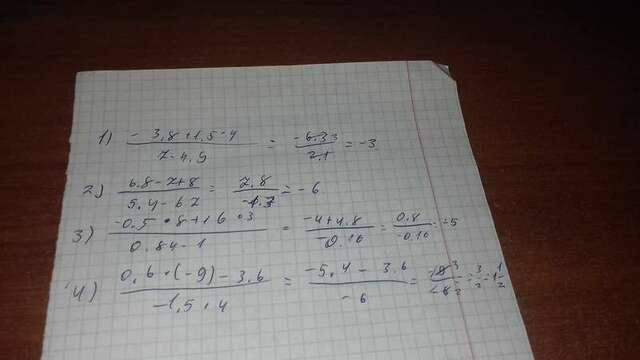 1) (- 3,8 + 1,5 - 4) / (7 - 4,9) = -6.33 / 2.1 = -3
2) (6.8 - 7 + 8) / (5.4 - 6 7) = 7.8 / -1.3 = -6
3) (-0.5 * 8 + 1 6 * 3) / (0.84 - 1) = (-4 + 4.8) / -0.16 = 0.8 / -0.16 = -5
4) (0,6 * (-9) - 3,6) / (-1,5 * 4) = (-5,4 - 3.6) / -6 = = 3/2 = 1 1/2